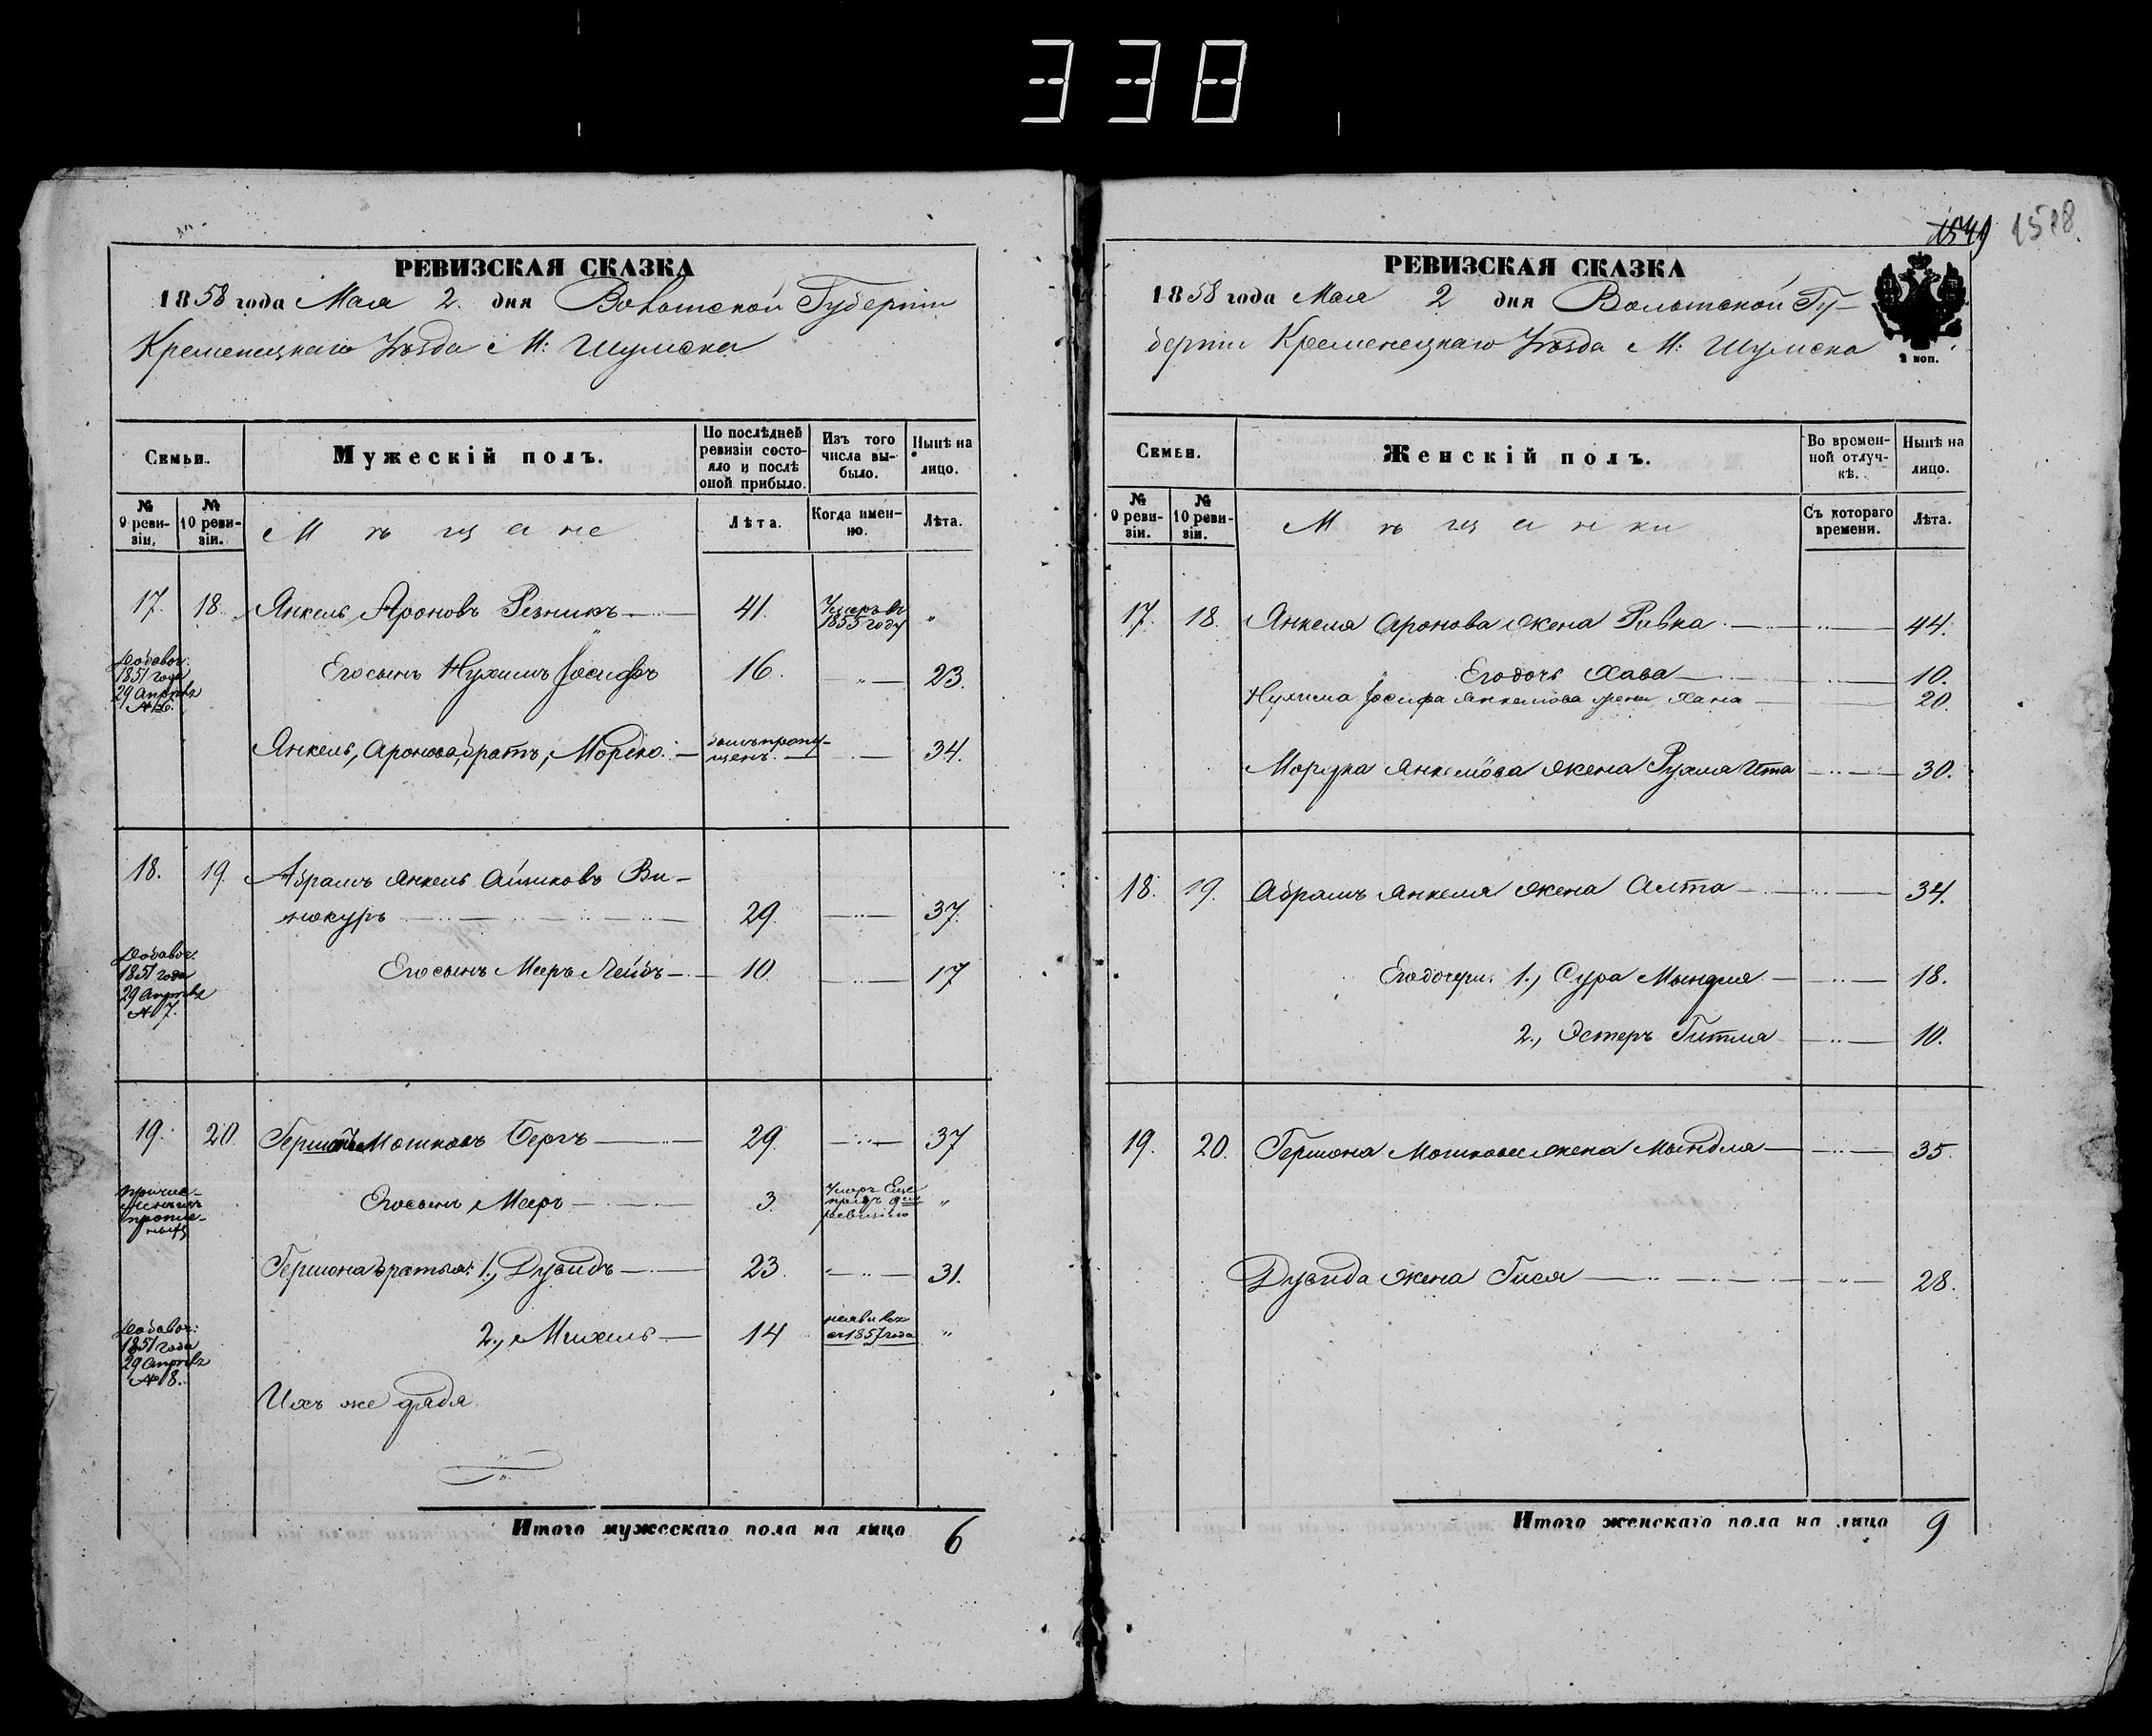 338
РЕВИЗСКАЯ СКАЗКА
1858 года Мая 2. дня Волынской Губерніи
Кременецкаго Уѣзда М: Шумска
Семьи.
Мужескій полъ.
По послѣдней ревизіи состояло и послѣ оной прибыло.
Изъ того числа выбыло.
Нынѣ на лицо.
№ 9 ревизіи.
№ 10 ревизіи.
Мѣщане
Лѣта.
Когда именно.
Лѣта.
17. 18. Янкель Ароновъ Резникъ 41. Умеръ въ 1855 году "
Добавоч: 1851 года 29 Апрѣля № 6.
Его сынъ Нухимъ Іосифъ 16. 23.
Янкель, Аронова братъ, Мордко былъ пропущенъ. 34.
18. 19. Абрамъ Янкель Айзиковъ Ви-
нокуръ 29. 37.
Добавоч: 1851 года 29 Апрѣля № 7.
Его сынъ Мееръ Лейбъ 10. 17
19. 20. Гершонъ Мошковъ Бергъ 29. 37
Его сынъ Мееръ 3. Умеръ Еще предъ ревизіею "
Гершона братья: 1., Дувидъ 23. 31.
2., Михель 14 неявився съ 1857 года "
Добавоч: 1851 года 29 Апрѣля № 8.
Ихъ же дядя
Итого мужескаго пола на лицо 6
1549 1518.
РЕВИЗСКАЯ СКАЗКА
1858 года Мая 2 дня Волынской Гу-
берніи Кременецкаго Уѣзда М: Шумска
Семьи.
Женскій полъ.
Во временной отлучкѣ.
Нынѣ на лицо.
№ 9 ревизіи.
№ 10 ревизіи.
Мѣщанки
Съ котораго времени.
Лѣта.
17. 18. Янкеля Аронова жена Ривка 44.
Его дочь Хава 10.
Нухима Іосифа Янкелова жена Хана 20.
Мордка Янкелова жена Рухля Ита 30.
18. 19. Абрамъ Янкеля жена Алта 34.
Его дочери: 1., Сура Мындля 18.
2., Эстеръ Гитля 10.
19. 20. Гершона Мошкова жена Мындля 35.
Дувида жена Гися 28.
Итого женскаго пола на лицо 9